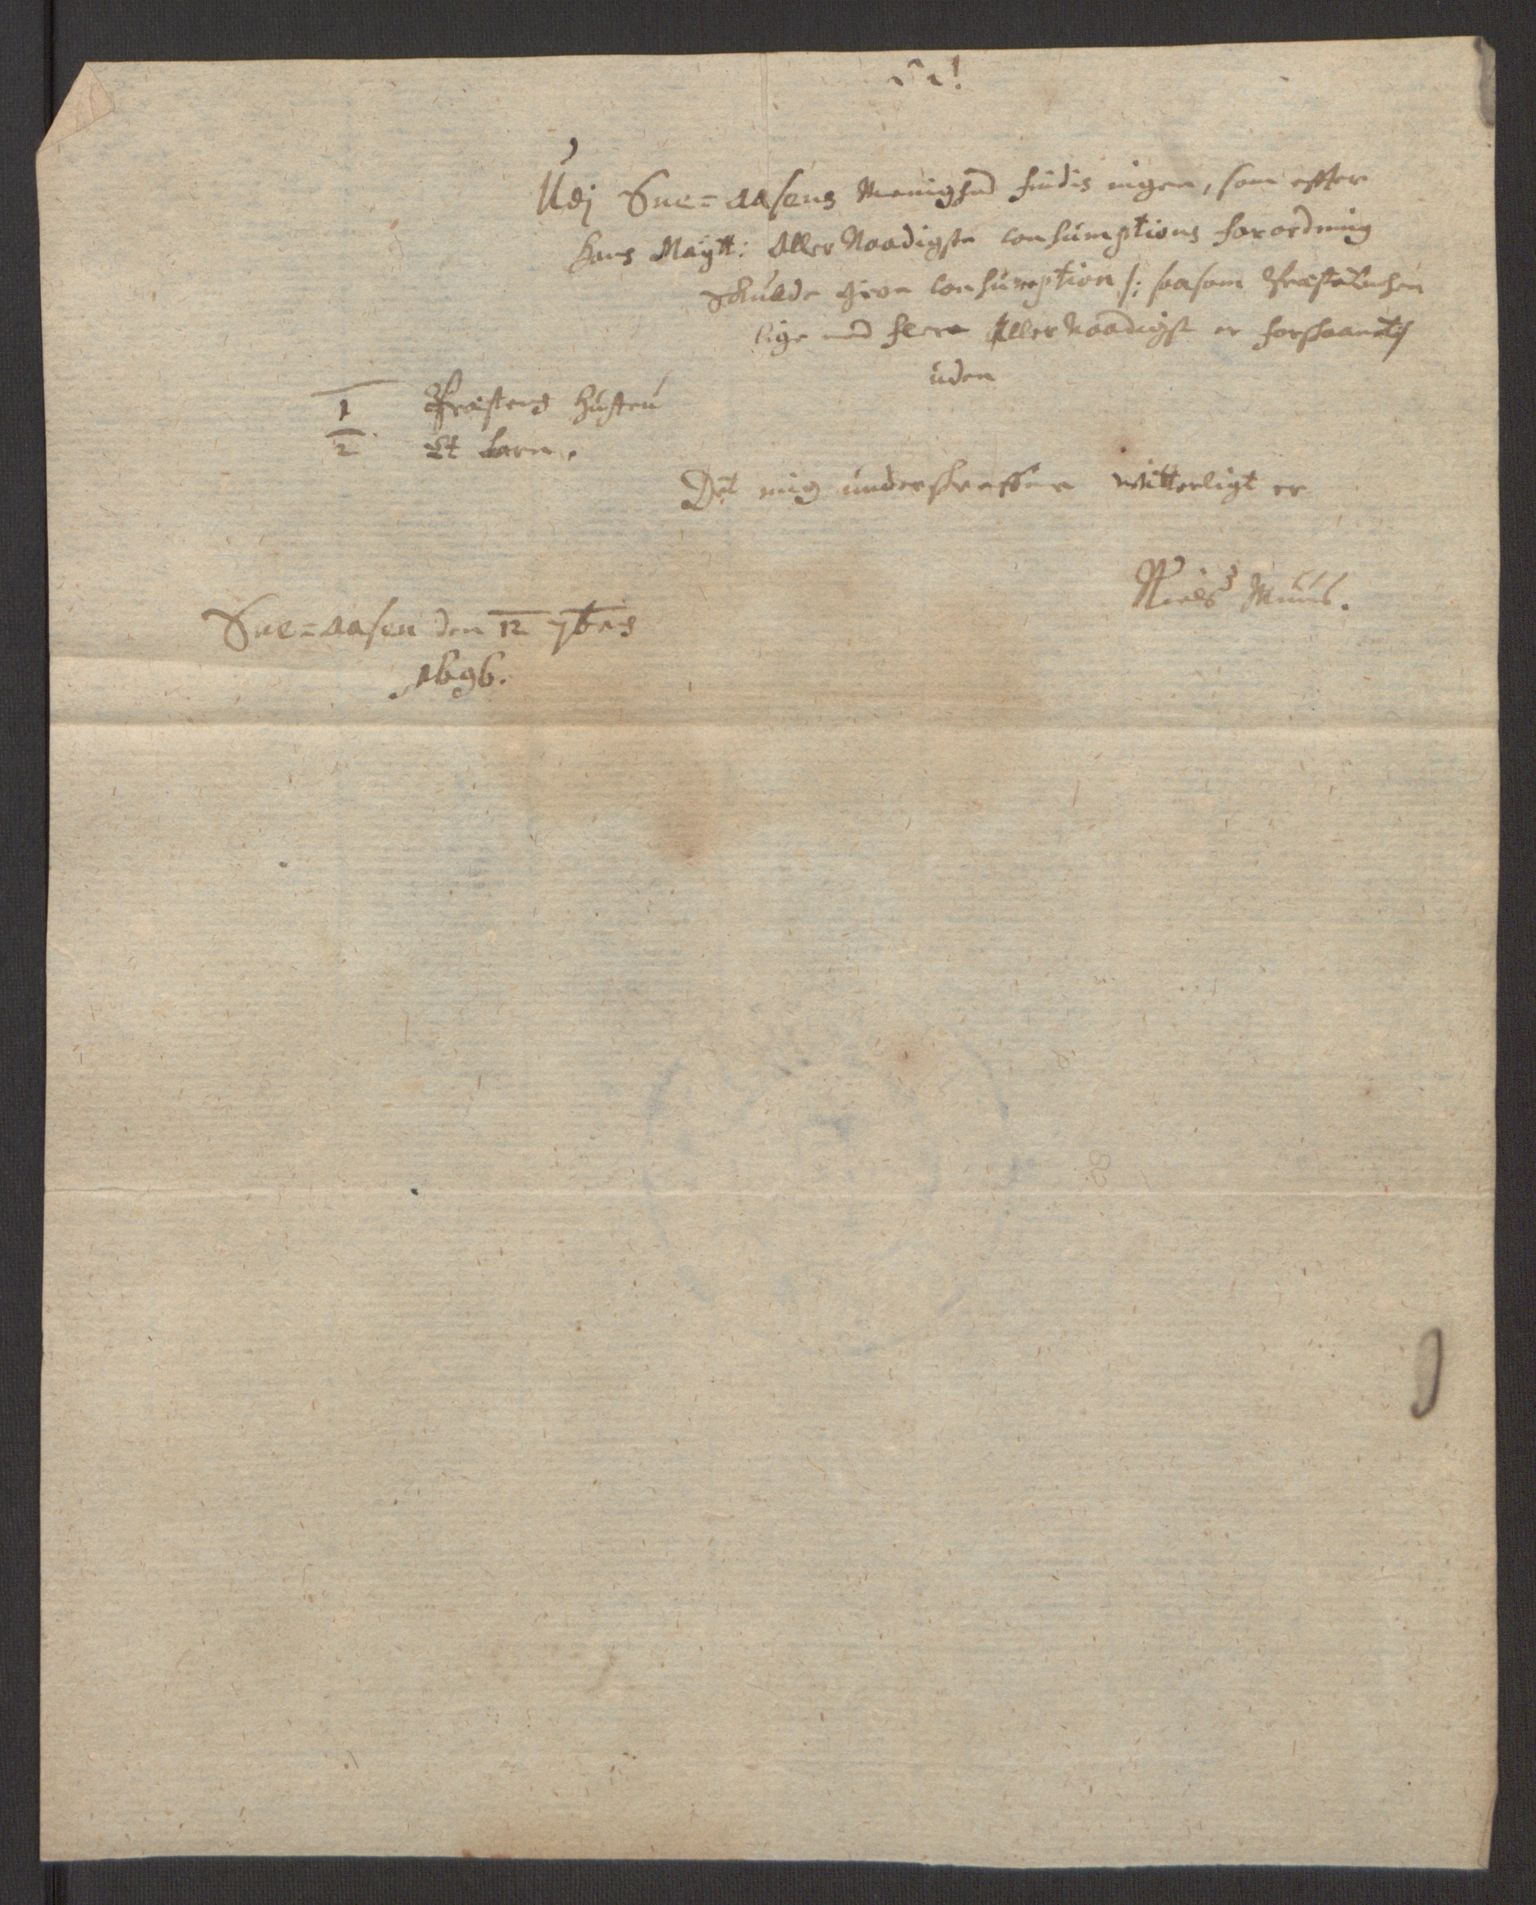 Udj Sne=aasens Meenighed findis ingen, som effter
Hans Maytt: Aller Naadigste Consumptions forordning
schulde give Consumption /: saasom Præste Enchen
lige med flere Aller Naadigst er forskaanet :/
uden
1 Præstens Hustru
2 Et barn.
Det mig underskreffven witterligt er
Niels Muus.
Sne=aasen den 12 7bris
1696.